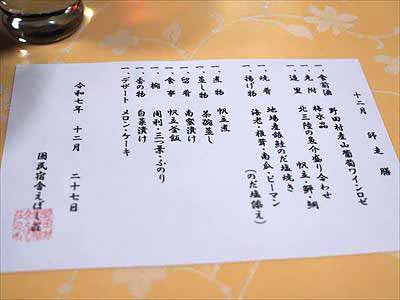 十二月 師走膳
一、食前酒 野田村産山葡萄ワインロゼ
一、先附 梅水晶
一、造里 北三陸の魚介盛り合わせ
帆立・鮃・鯛
一、焼肴 地場産銀鮭のだ塩焼き
一、揚げ物 海老・椎茸・南瓜・ピーマン
(のだ塩添え)
一、煮物 帆立煮
一、蒸し物 茶碗蒸し
一、留肴 南蛮漬け
一、食事 帆立釜飯
一、椀 周利・三つ葉・ふのり
一、香の物 白菜漬け
一、デザート メロン・ケーキ
令和七年 十二月 二十七日
国民宿舎えぼし荘